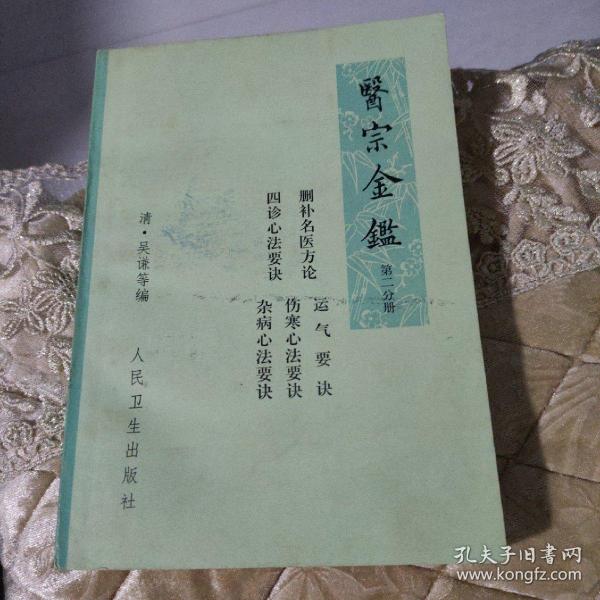 醫宗金鑑
第二分册
删补名医方论
四诊心法要诀
运气要诀
伤寒心法要诀
杂病心法要诀
清·吴谦等编
人民卫生出版社
孔夫子旧书网
www.kongfz.com